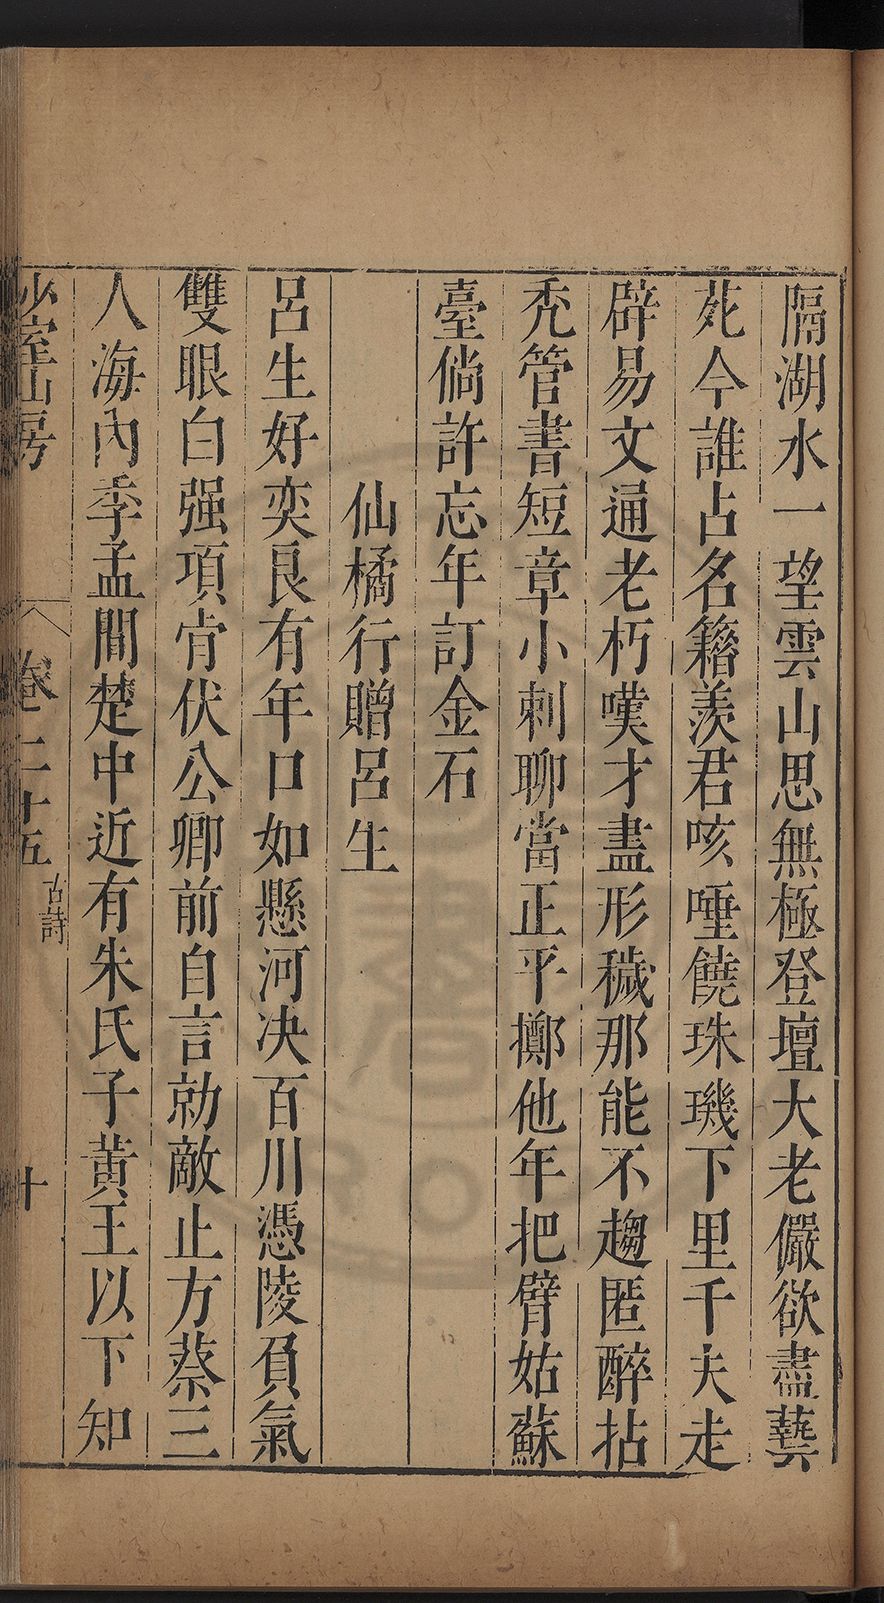 隔湖水一望雲山思無極登壇大老儼欲盡藝
苑今誰占名籍羨君咳唾饒珠璣下里千夫走
辟易文通老朽嘆才盡形穢那能不趨匿醉拈
禿管書短章小刺聊當正平擲他年把臂姑蘇
臺倘許忘年訂金石
仙橘行贈呂生
呂生好奕良有年口如懸河决百川憑陵負氣
雙眼白强項肯伏公卿前自言勍敵止方蔡三
人海內季孟間楚中近有朱氏子黄王以下知
少室山房
卷二十五
古詩
十